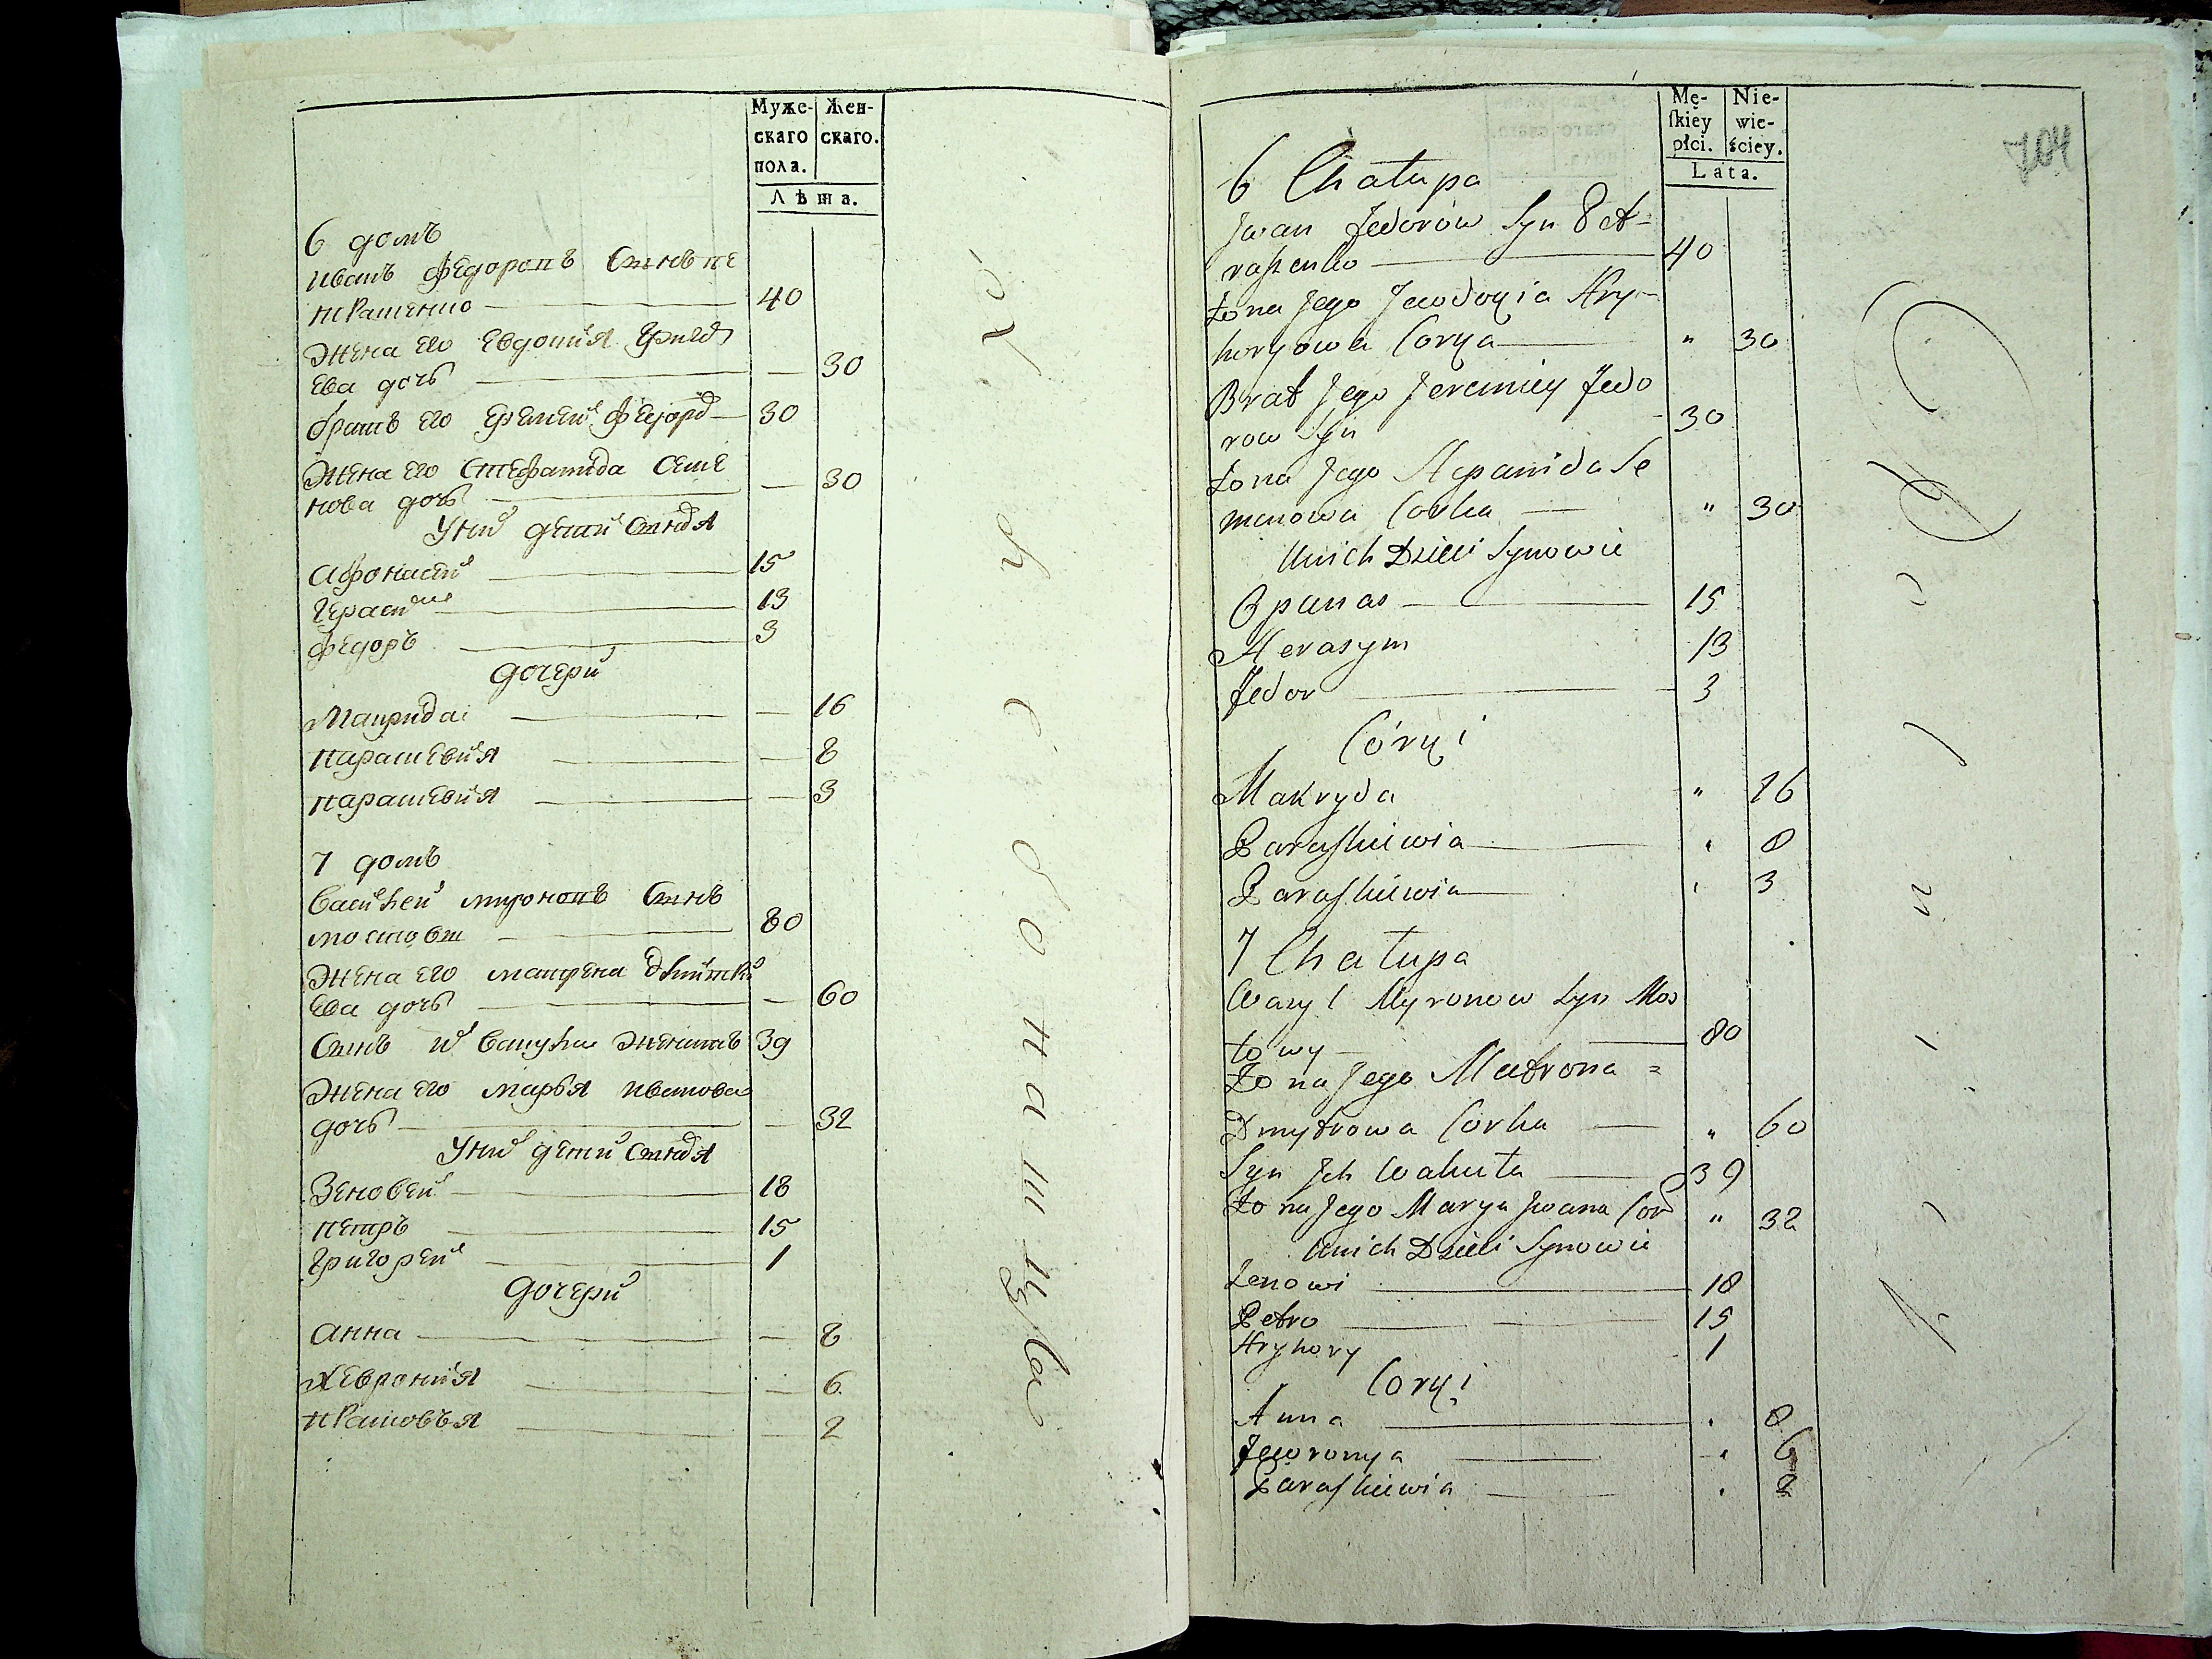 Муже-
скаго
пола.
Жен-
скаго.
Лѣта.
6 домъ
Иванъ Федоровъ Сынъ пе
трашенко 40
Жена его Евдокия Григор
ева дочь — 30
братъ его Еремей Федоров 30
Жена его Степанида Семе
нова дочь — 30
У них дети Сыновя
Афонасий 15
Герасим 13
Федоръ 3
дочери
Макрида — 16
парасковия — 8
парасковия — 3
7 домъ
Василей мироновъ Сынъ
80
Жена его матрена дмитри
ева дочь — 60
Сынъ их женатъ 39
Жена его марья иванова
дочь — 32
У них дети Сыновя
Зеновей 18
петръ 15
Григорей 1
дочери
анна — 8
Хеврония — 6
— 2
Mę-
skiey
płci.
Nie-
wie-
ściey.
Lata.
704
6 Chałupa
Jwan Fedorów Syn Pet-
raszenko 40
Żona Jego Jewdokia Hry-
horyowa Corka " 30
Brat Jego Jeremiey Fedo
row Syn 30
Żona Jego Se
menowa Corka " 30
Unich Dzieci Synowie
Opanas 15
Herasym 13
Fedor 3
Córki
Makryda " 16
Paraskiewia " 8
Paraskiewia " 3
7 Chałupa
Wasyl Myronow Syn Mos
towy 80
Żona Jego Matrona =
Dmytrowa Corka " 60
Syn Jch Wakuła 39
Żona Jego Marya Jwana Cor " 32
Unich Dzieci Synowie
Zenowi 18
Petro 15
Hryhory 1
Corki
Anna " 8
Jewronya " 6
Paraskiewia " 2